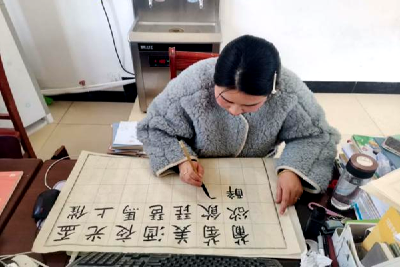 葡萄美酒夜光盃
欲飲琵琶馬上催
醉